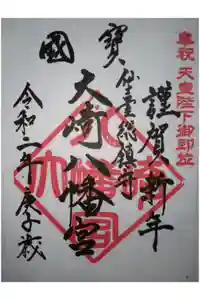 奉祝 天皇陛下御即位
謹賀新年
國寳
仙臺総鎮守
大崎八幡宮
令和二年庚子歳